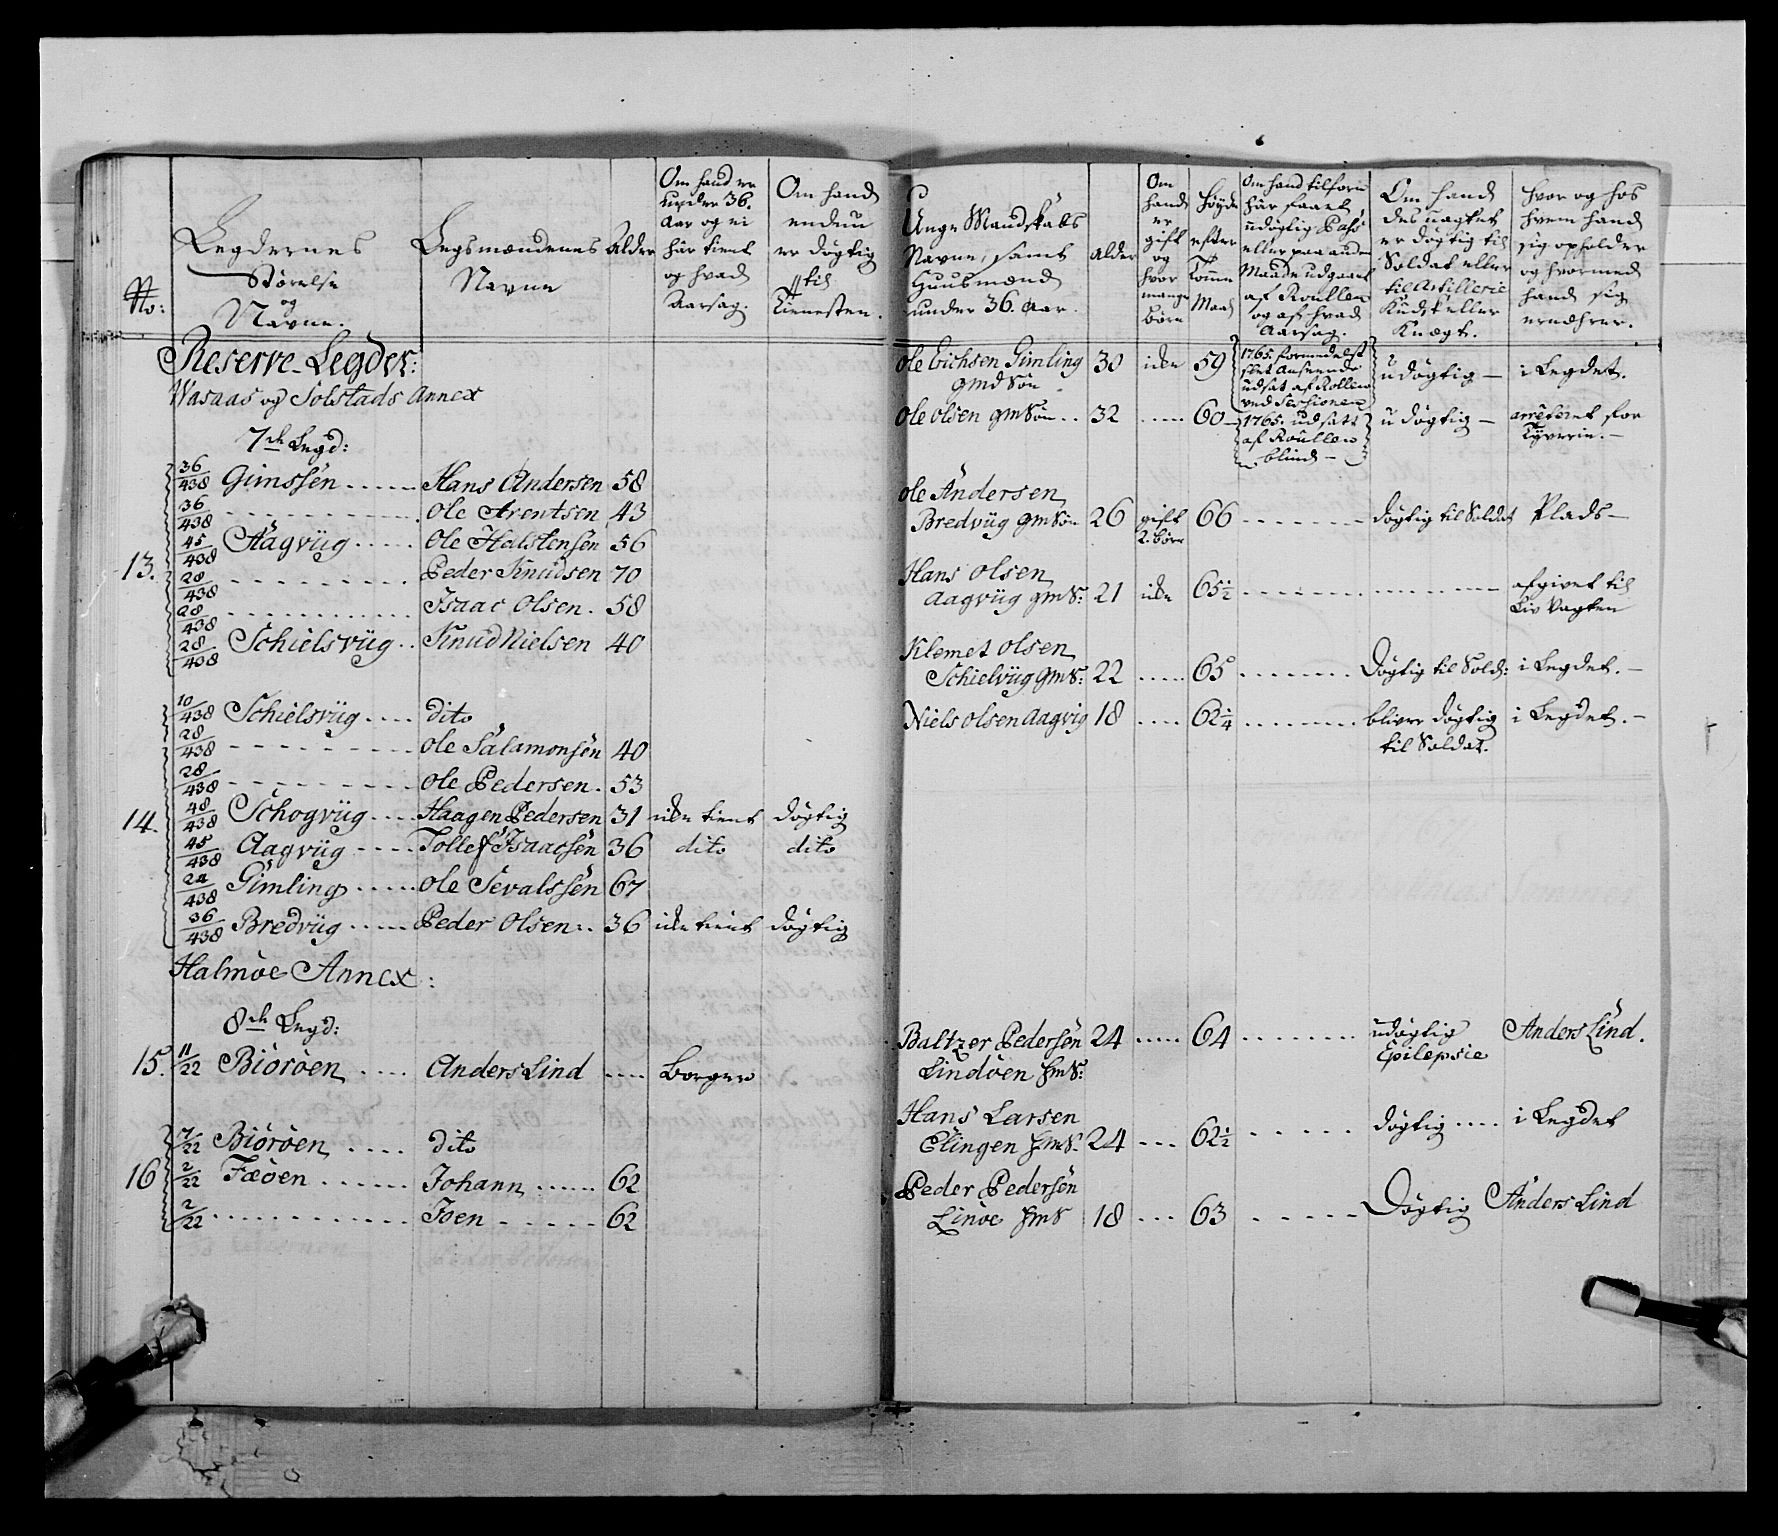 No:
Legdernes
Størelse
og
Navne.
Legsmændenes
Navne
Alder
Om hand er
under 36.
Aar og ei
har tient
og hvad
Aarsag.
Om hand
endnu
er døgtig
til
Tienesten.
Reserve-Legder:
Wasaas og Solstads Annex
7de Legd:
13.
36/438 Gimssén ...... Hans Andersen 58
36/438 - - - - - - Ole Arentsen 43
45/438 Aagvüg ..... Ole Halstensén 56
28/438 - - - - - - Peder Knudsen 70
28/438 - - - - - - Isaac Olsen. 58
28/438 Schielsvüg .. Knud Nielsen 40
10/438 Schielsvüg .... dito
28/438 - - - - - - Ole Salamonsén 40
28/438 - - - - - - Ole Pedersen. 53
14. 48/438 Schogvüg .... Haagen Pedersen 31 icke tient døgtig
45/438 Aagvüg ----- Tollef Isaacsén 36 dito dito
24/438 Gimling ..... Ole Sevalssén 67
36/438 Bredvüg ..... Peder Olsen .. 36 icke tient døgtig
Halmöe Annex:
8de Legd:
15. 11/22 Biöröen .... Anders Lind .... Borger
7/22 Biöröen .... dito
16 2/22 Fæöen ...... Johann ...... 62
2/22 ............ Joen - - - - - - 62
Unge Mandskabs
Navne, samt
Huusmænd
under 36. Aar.
Alder
Om
hand
er
gift
og
hvor
mange
børn
Høyde
efter
Tomme
Maal
Om hand tilforn
har faaet
udøgtig Pass
eller paa anden
Maade udgaaet
af Roullen
og af hvad
Aarsag.
Om hand
des uagtet
er døgtig til
Soldat eller
til Artillerie
Kudsk eller
Knægt.
Hvor og hos
hvem hand
sig opholder
og hvormed
hand sig
ernæhrer.
Ole Erichsen Gimling 30 icke 59 1765. formedelst
slet Anseende
udsat af Rollen
ved Sessionen udøgtig — i Legdet.
gmd Søn
Ole Olsen gm Søn .. 32 ..... 60 — 1765. udsatt
af Roullen
blind — udøgtig — arresteret for
Tyverie. —
Ole Andersen
Bredvüg gm Søn 26 gift
2. børn 66 - - - - - - døgtig til Soldat Plads —
Hans Olsen
Aagvüg gmS: 21 icke 65½ - - - - - - - - - - - - afgivet til
Liv Vagten
Klemet Olsen
Schielvüg gmS: 22 ..... 65 ........ Døgtig til Sold: i Legdet. —
Niels Olsen Aagvig 18 .... 62¼ ........ bliver døgtig
til Soldat. i Legdet. —
Baltzer Pedersén 24 ..... 64 ....... udøgtig
Epilepsie Anders Lind.
Lindöen HmS:
Hans Larsen
Elingen HmS. 24 ... 62½ - - - - - døgtig .... i Legdet
Peder Pedersén
Linöe HmS 18 ... 63 - - - - - Døgtig Anders Lind